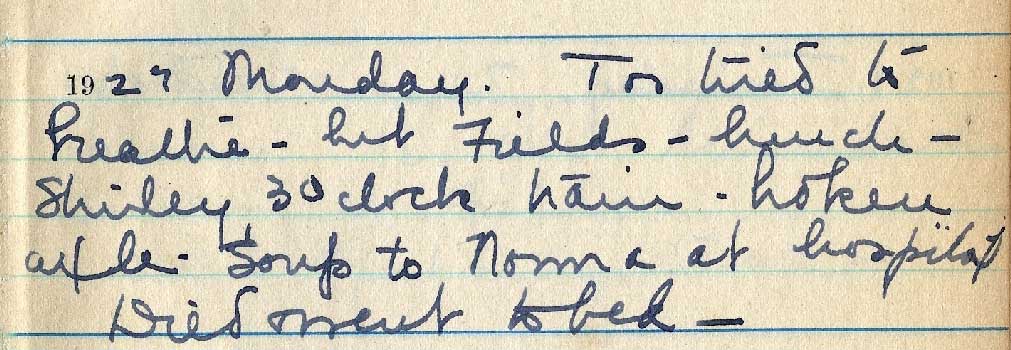 1927 Monday. Too tired to
breathe - but Fields - lunch -
Shirley 3 Oclock train - broken
axle. Soup to Norma at hospital
Died went to bed -